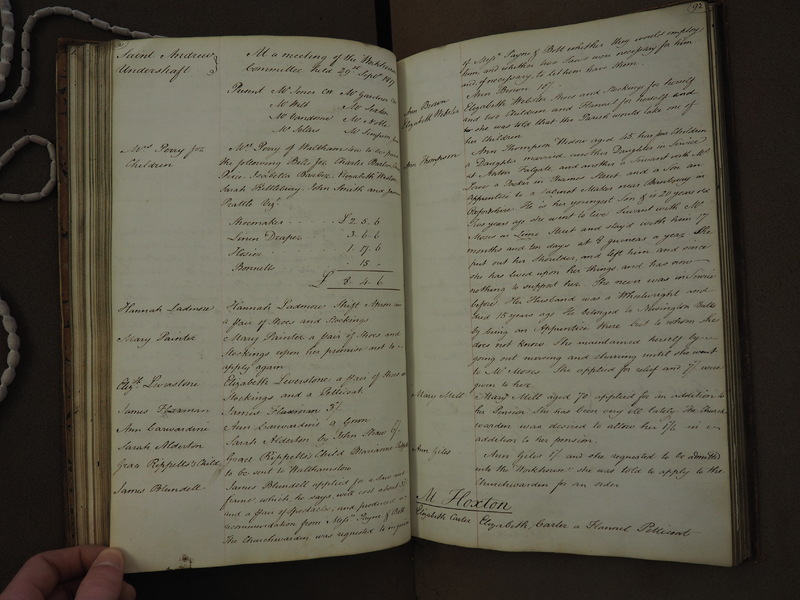 Saint Andrew
Undershaft
At a meeting of the Workhouse
Committee held 29th Septr 1817
Present Mr Jones CW Mr Gardner
Mr Witt Mr Sexton
Mr Vandome Mr Noble
Mr Sellers Mr Simpson
Mrs Perry for
Children
Mrs Perry of Walthamstow to be paid
the following Bills for Charles Barton
Price Isabella Barber Elizabeth Webster
Sarah Kettlebury John Smith and
Peattle Vizt
Shoemaker £ 2. 5. 6
Linen Draper 3. 6. 6
Hosier 1. 17. 6
Bonnetts . 15 -
£ 8. 4. 6
Hannah Ladmore
Hannah Ladmore Shift Apron and
a pair of Shoes and Stockings
Mary Painter
Mary Painter a pair of Shoes and
Stockings upon her promise not to
apply again
Elizth Liverstone
Elizabeth Liverstone a pair of Shoes
Stockings and a Petticoat
James Flaxman
James Flaxman 5/.
Ann Garwardine
Ann Garwardine a Gown
Sarah Alderton
Sarah Alderton by John Shaw 6/.
Grace Ripplets's Child
Grace Ripplets's Child Marianne
to be sent to Walthamstow
James Blundell
James Blundell applied for a new
frame, which he says will cost about
and a pair of Spectacles, and produced a
recommendation from Messrs Payne & Bott
The Churchwarden was requested to enquire
92
of Messrs Payne & Bott whether they would employ
him, and whether two Saws were necessary for him
and if necessary, to let him have them.
Ann Brown
Ann Brown 10/.
Elizabeth Webster
Elizabeth Webster Shoes and Stockings for herself
and two Children and Flannel for herself and
she was told that the Parish would take one of
her Children
Ann Thompson
Ann Thompson Widow aged 45 has four Children
a Daughter married, another Daughter in Service
at Norton Falgate, and another a Servant with Mr
Lowe a Cooper in Thames Street, and a Son an
Apprentice to a Cabinet Maker near
Oxfordshire. He is her youngest Son & is 20 years old
Five years ago she went to live Servant with Mr
Moses in Lime Street and stay'd with him 17
months and ten days at 8 guineas a year She
put out her Shoulder, and left him and since
she has lived upon her things and has now
nothing to support her. She never was in Service
before. Her Husband was a Wheelwright and
died 15 years ago He belonged to Newington Butts
by being an Apprentice there but to whom she
does not know She maintained herself by
going out nursing and charing until she went
to Mr Moses. She applied for relief and 7/. were
given to her
Mary Mill
Mary Mill aged 70 applied for in addition to
her Pension She has been very ill lately. The Church
warden was desired to allow her 1/6 in
addition to her pension.
Ann Giles
Ann Giles 1/ and she requested to be admitted
into the Workhouse she was told to apply to the
Churchwarden for an order
At Hoxton
Elizabeth Carter
Elizabeth Carter a Flannel Petticoat